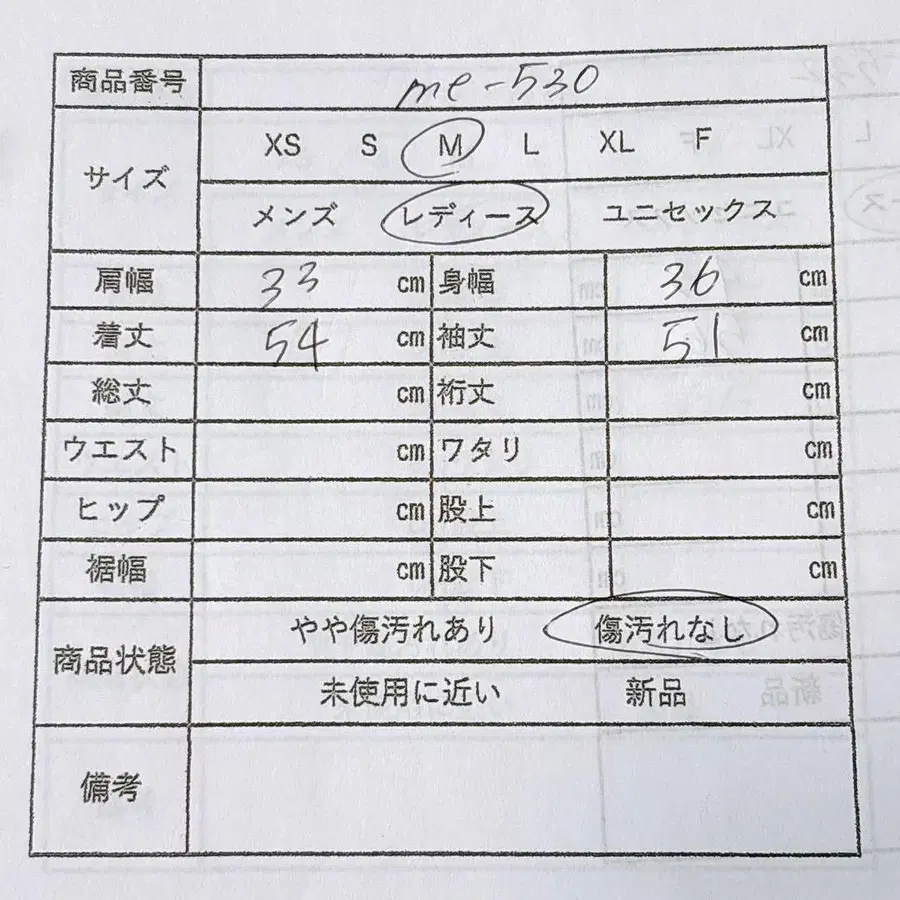 商品番号 me-530
サイズ XS S M L XL F
メンズ レディース ユニセックス
肩幅 33 cm 身幅 36 cm
着丈 54 cm 袖丈 51 cm
総丈 cm 裄丈 cm
ウエスト cm ワタリ cm
ヒップ cm 股上 cm
裾幅 cm 股下 cm
商品状態 やや傷汚れあり 傷汚れなし
未使用に近い 新品
備考